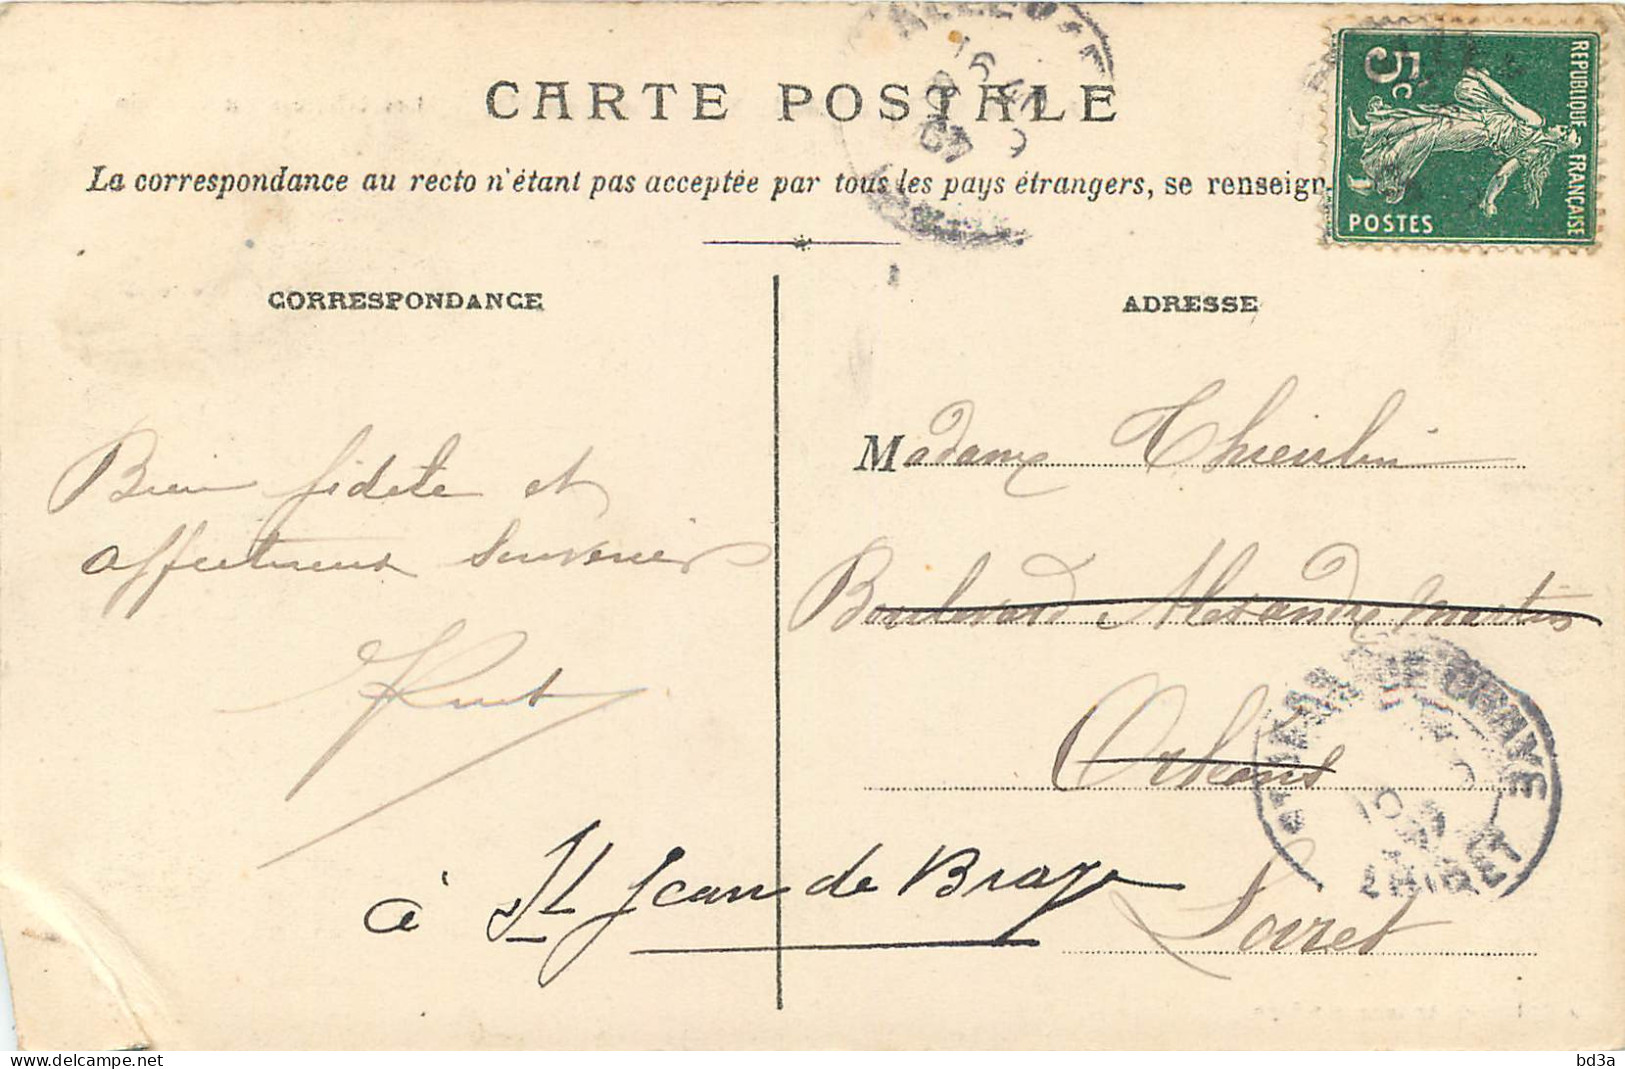 CARTE POSTALE
La correspondance au recto n'étant pas acceptée par tous les pays étrangers, se renseign
5c
REPUBLIQUE FRANÇAISE
POSTES
CORRESPONDANCE
ADRESSE
Bien fidèle et
affectueux souvenir
Madame Thieulin
Boulevard Alexandre Martin
Orléans
à St Jean de Braye
Loiret
ST JEAN DE BRAYE
LOIRET
delcampe.net
bd3a